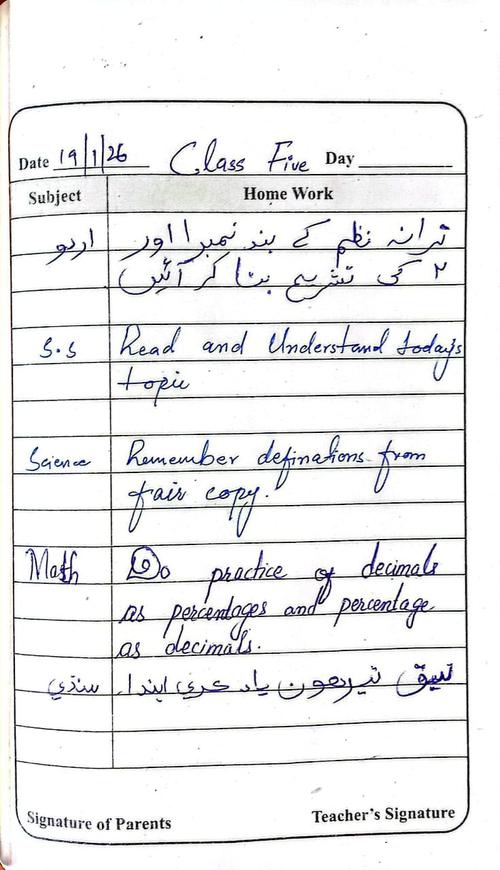 Date 19/1/26 Class Five Day
Subject Home Work
اردو ترانہ نظم کے بند نمبر ۱ اور
۲ کی تشریح بنا کر آئیں
S.S Read and Understand today's
topic
Science Remember definations from
fair copy.
Math Do practice of decimals
as percentages and percentage
as decimals.
سنڌي سبق تيرهون ياد ڪري ايندا.
Signature of Parents Teacher's Signature